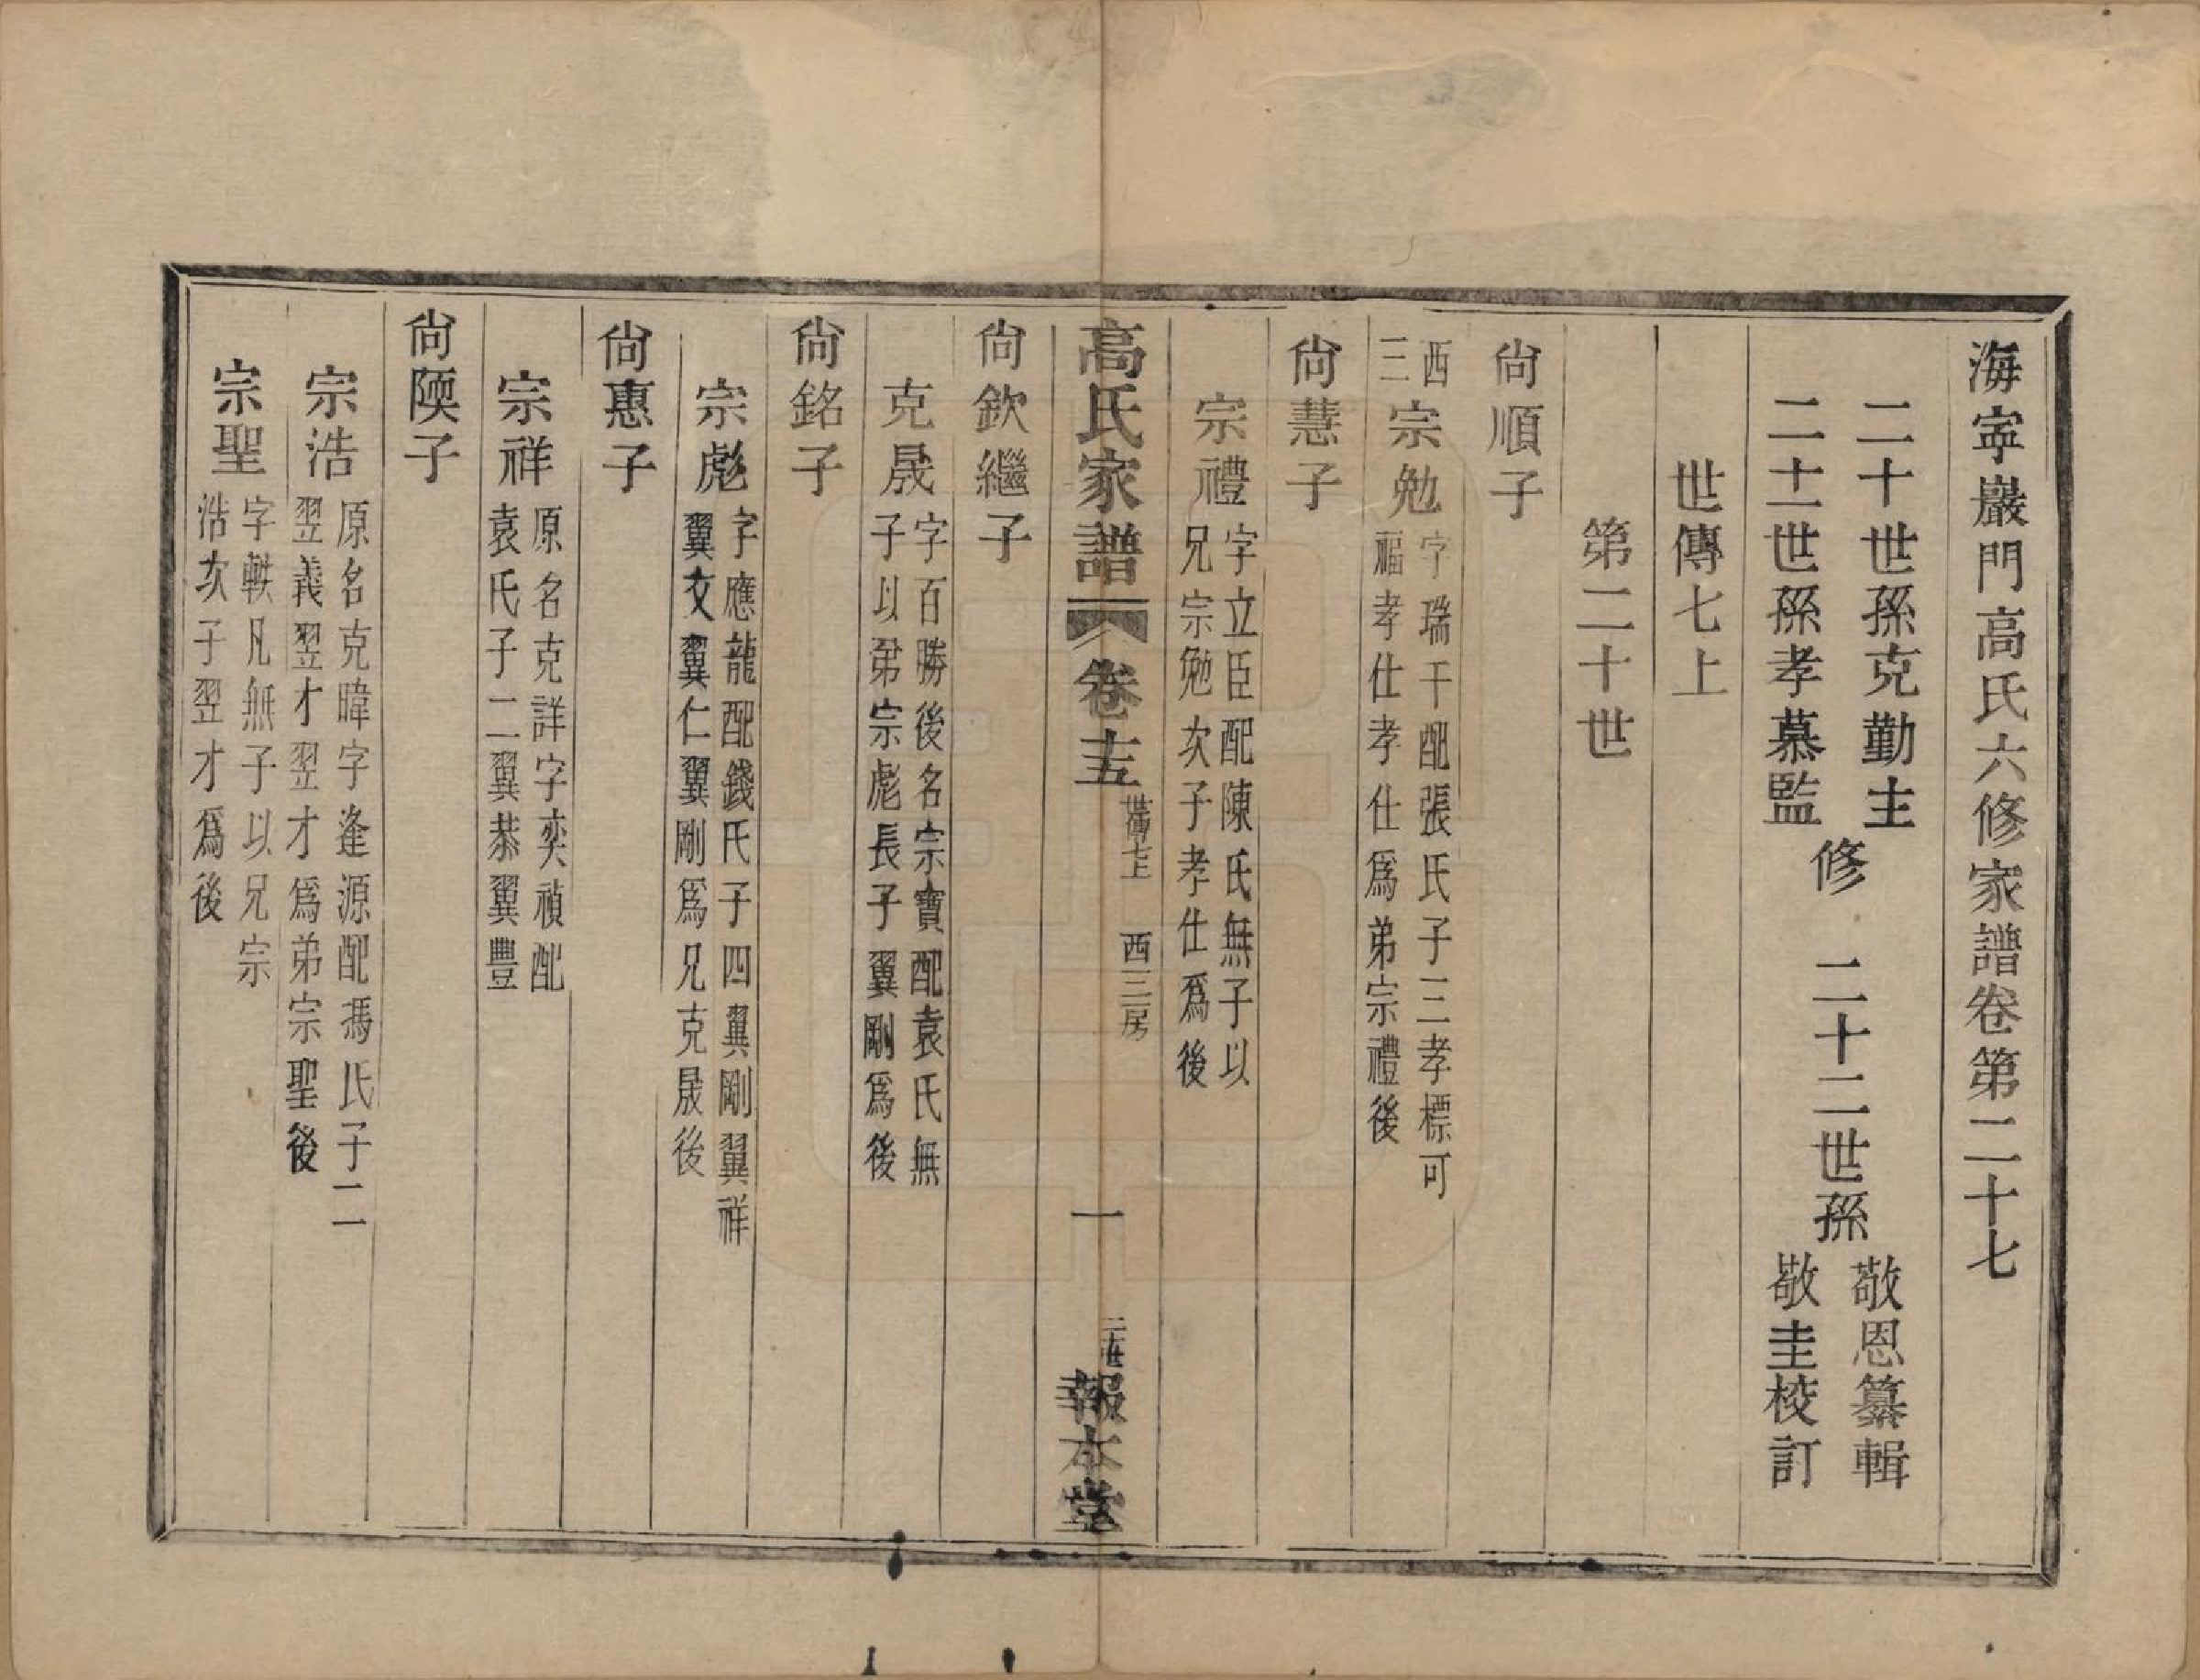 海寍巖門高氏六修家譜卷第二十七
二十世孫克勤主
二十一世孫孝慕監
修
二十二世孫
敬恩纂輯
敬圭校訂
世傳七上
第二十世
尙順子
西
三
宗勉
字瑞干配張氏子三孝標可
福孝仕孝仕爲弟宗禮後
尙慧子
宗禮
字立臣配陳氏無子以
兄宗勉次子孝仕爲後
高氏家譜
卷
世傳七上
西三房
一
二十世
報本堂
尙欽繼子
克晟
字百勝後名宗寶配袁氏無
子以弟宗彪長子翼剛爲後
尙銘子
宗彪
字應龍配錢氏子四翼剛翼祥
翼文翼仁翼剛爲兄克晟後
尙惠子
宗祥
原名克詳字奕禎配
袁氏子二翼恭翼豐
尙陾子
宗浩
原名克暐字逢源配馮氏子二
翌義翌才翌才爲弟宗聖後
宗聖
字軼凡無子以兄宗
浩次子翌才爲後